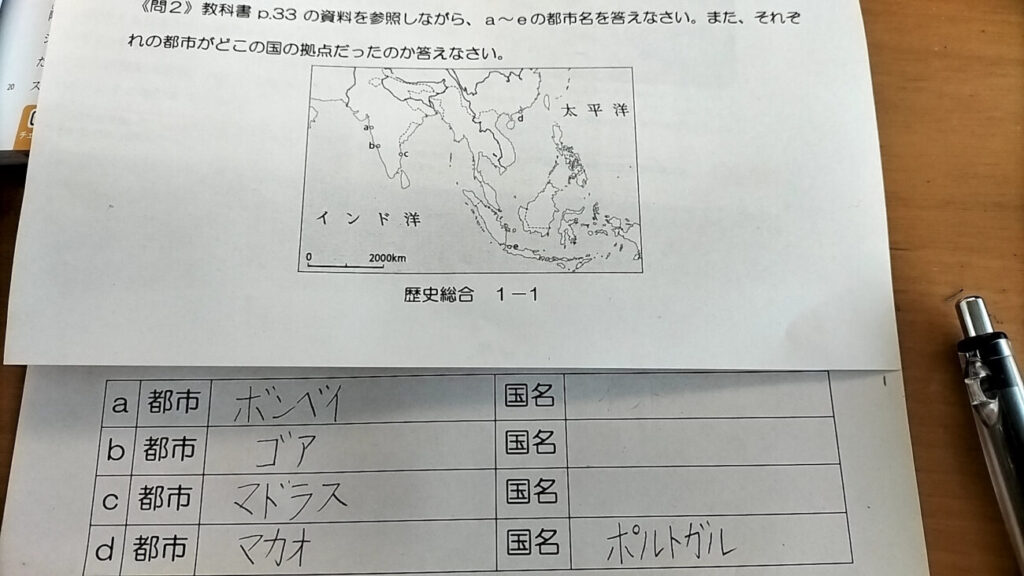 《問2》教科書 p.33 の資料を参照しながら、a~eの都市名を答えなさい。また、それぞ
れの都市がどこの国の拠点だったのか答えなさい。
20
ス
太平洋
a
b
c
d
インド洋
e
0 2000km
歴史総合 1-1
a 都市 ボンベイ 国名
b 都市 ゴア 国名
c 都市 マドラス 国名
d 都市 マカオ 国名 ポルトガル